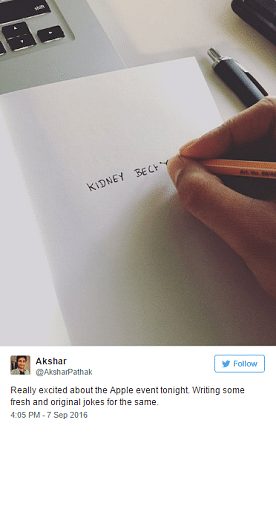 KIDNEY BECH
Akshar
@AksharPathak
Follow
Really excited about the Apple event tonight. Writing some
fresh and original jokes for the same.
4:05 PM - 7 Sep 2016